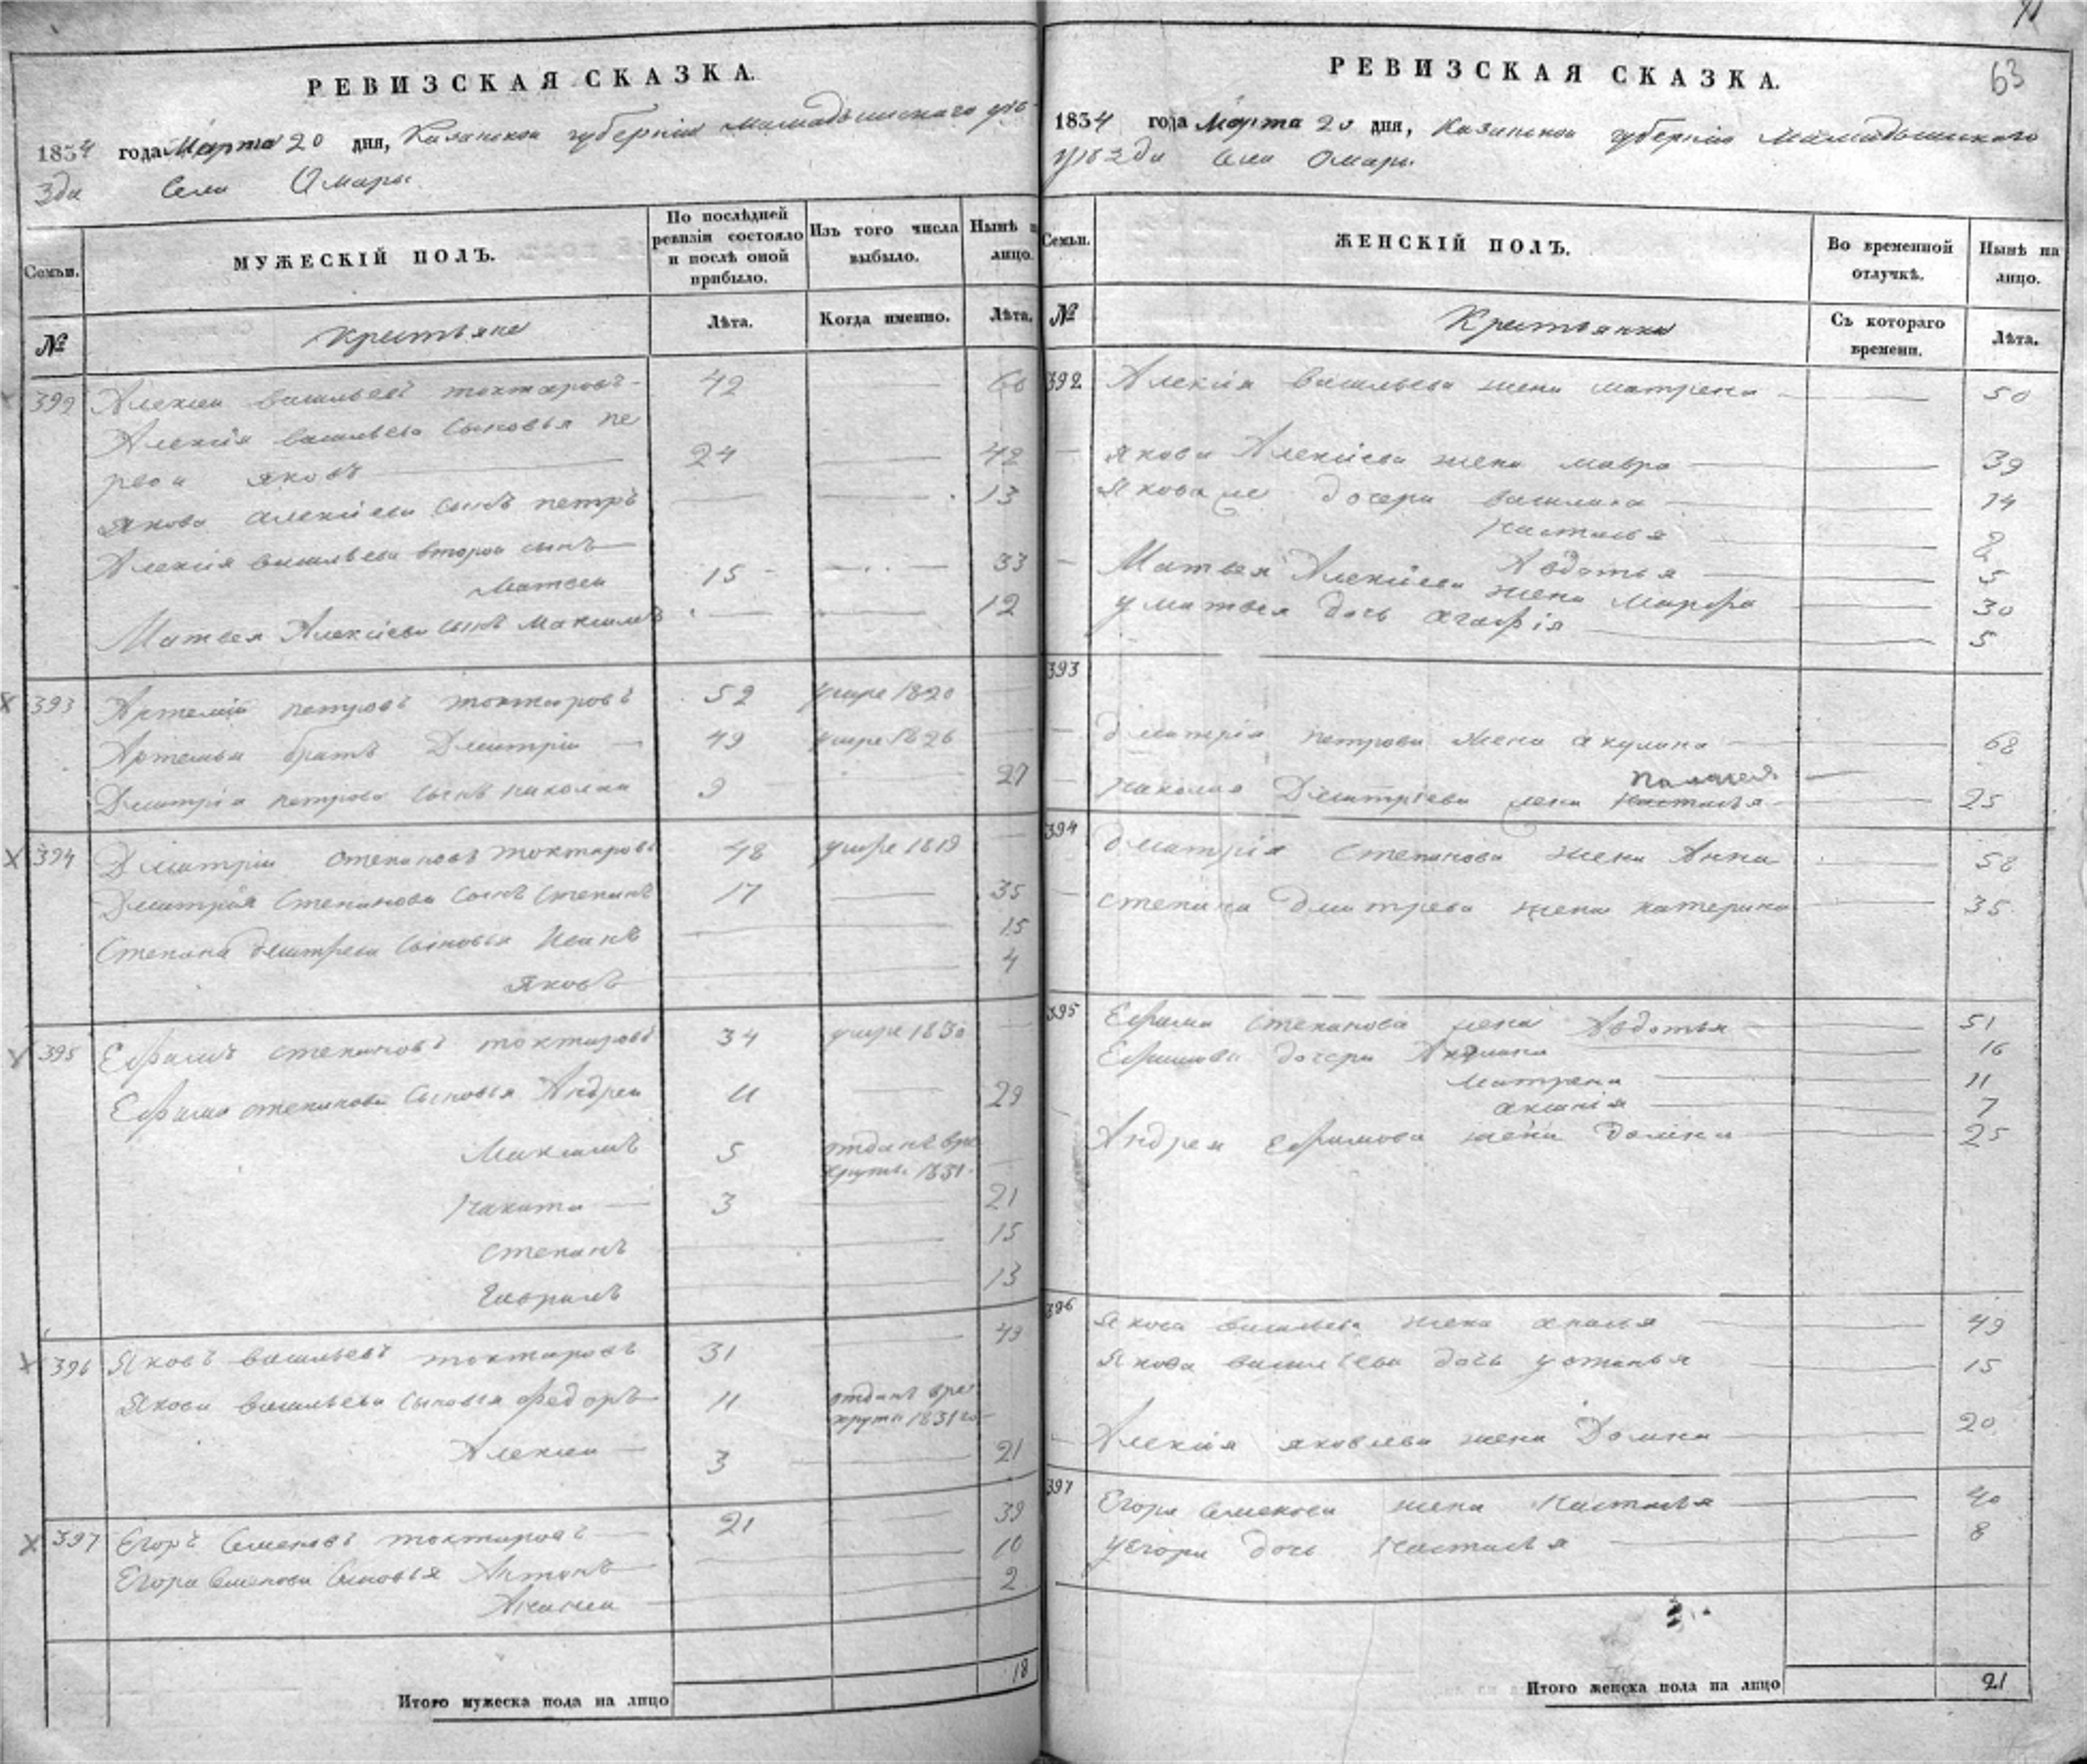 РЕВИЗСКАЯ СКАЗКА.
1834 года Марта 20 дня, Казанской губернiи Мамадышскаго уѣ-
зда Села Омары.
Семьи.
МУЖЕСКІЙ ПОЛЪ.
По послѣдней ревизіи состояло и послѣ оной прибыло.
Изъ того числа выбыло.
Нынѣ н лицо.
№
Крестьяне
Лѣта.
Когда именно.
Лѣта.
392 Алексей васильевъ токтаровъ 42 60
Алексѣя васильева сыновья пе
рвои яковъ 24 42
Якова алексіева сынъ петръ 13
Алексѣя васильева второй сынъ
Матвеи 15 33
Матвея Алексіева сынъ Максимъ 12
393 Артемiй петровъ токтаровъ 52 умре 1820
Артемья братъ Дмитрiи 49 умре 1826
Дмитрiя петрова сынъ николаи 9 27
394 Дмитрiи степановъ токтаровъ 48 умре 1819
Дмитрiя Степанова сынъ степанъ 17 35
Степана дмитрева сыновья Иванъ 15
Яковъ 4
395 Ефимъ степановъ токтаровъ 34 умре 1830
Ефима степанова сыновья Андреи 11 29
Максимъ 5 отданъ вре
круты 1831
Никита 3 21
степанъ 15
Гаврилъ 13
396 Яковъ васильевъ токтаровъ 31 49
Якова васильева сыновья федоръ 11 отданъ вре
круты 1831 го
Алексеи 3 21
397 Егоръ Семеновъ токтаровъ 21 39
Егора Семенова сыновья Антонъ 10
Ананеи 2
Итого мужеска пола на лицо 18
63
РЕВИЗСКАЯ СКАЗКА.
1834 года Марта 20 дня, Казанской губернiи Мамадышскаго
уѣзда Села Омары.
Семьи.
ЖЕНСКІЙ ПОЛЪ.
Во временной отлучкѣ.
Нынѣ на лицо.
№
Крестьянки
Съ котораго времени.
Лѣта.
392 Алексiя васильева жена матрена 50
Якова Алексiева жена мавра 39
Якова же дочери василиса 14
настасья 8
Авдотья 5
Матвея Алексiева жена Марфа 30
у матвея дочь агафiя 5
393
Дмитрiя петрова жена акулина 68
Палагея
николая Дмитрiева жена настасья 25
394 Дмитрiя Степанова жена Анна 58
степана дмитрева жена катерина 35
395 Ефима степанова жена Авдотья 51
Ефимовы дочери Акулина 16
матрена 11
аксинiя 7
Андрея ефимова жена домна 25
396 Якова васильева жена 49
Якова васильева дочь устинья 15
Алексiя яковлева жена Домна 20
397 Егора семенова жена Настасья 40
уегора дочь Настасья 8
Итого женска пола на лицо 21